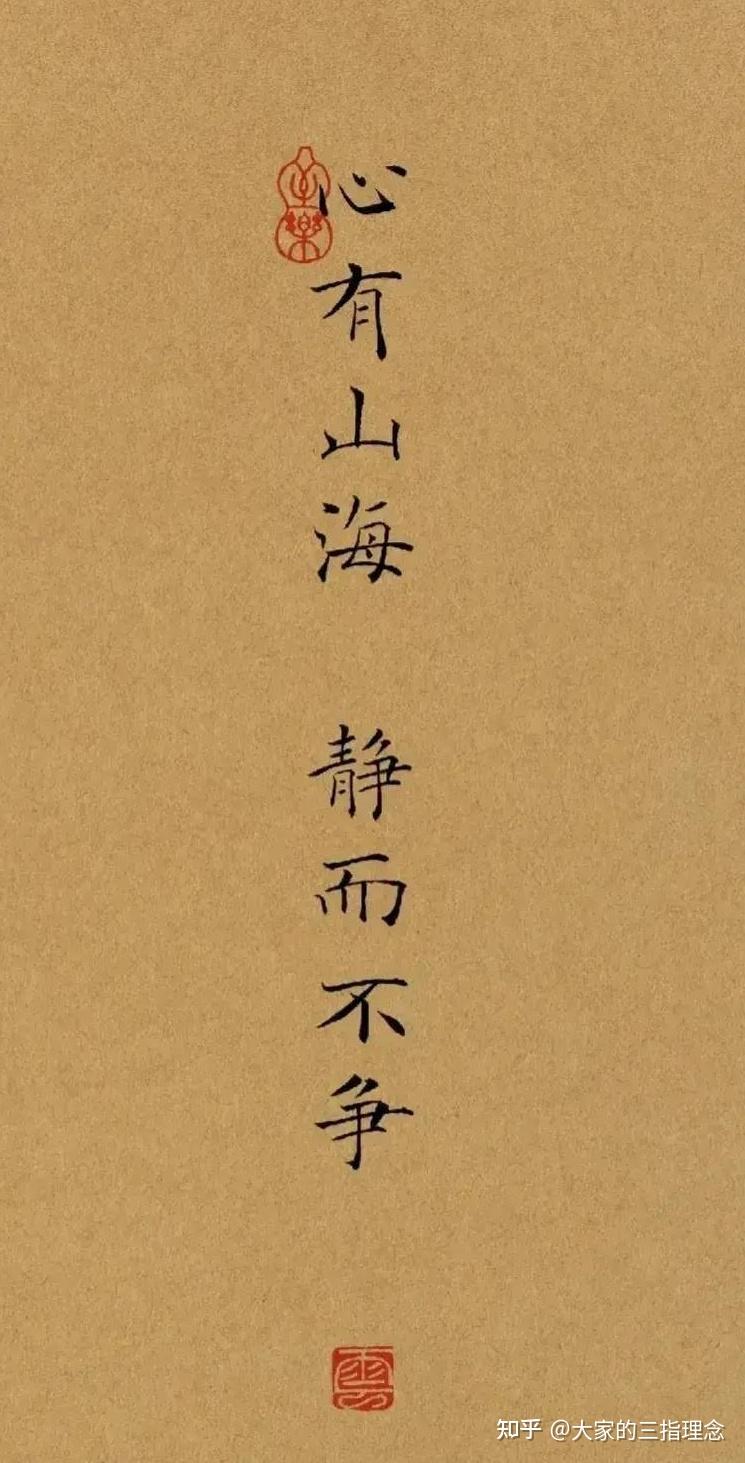 心有山海 静而不争
知乎 @大家的三指理念